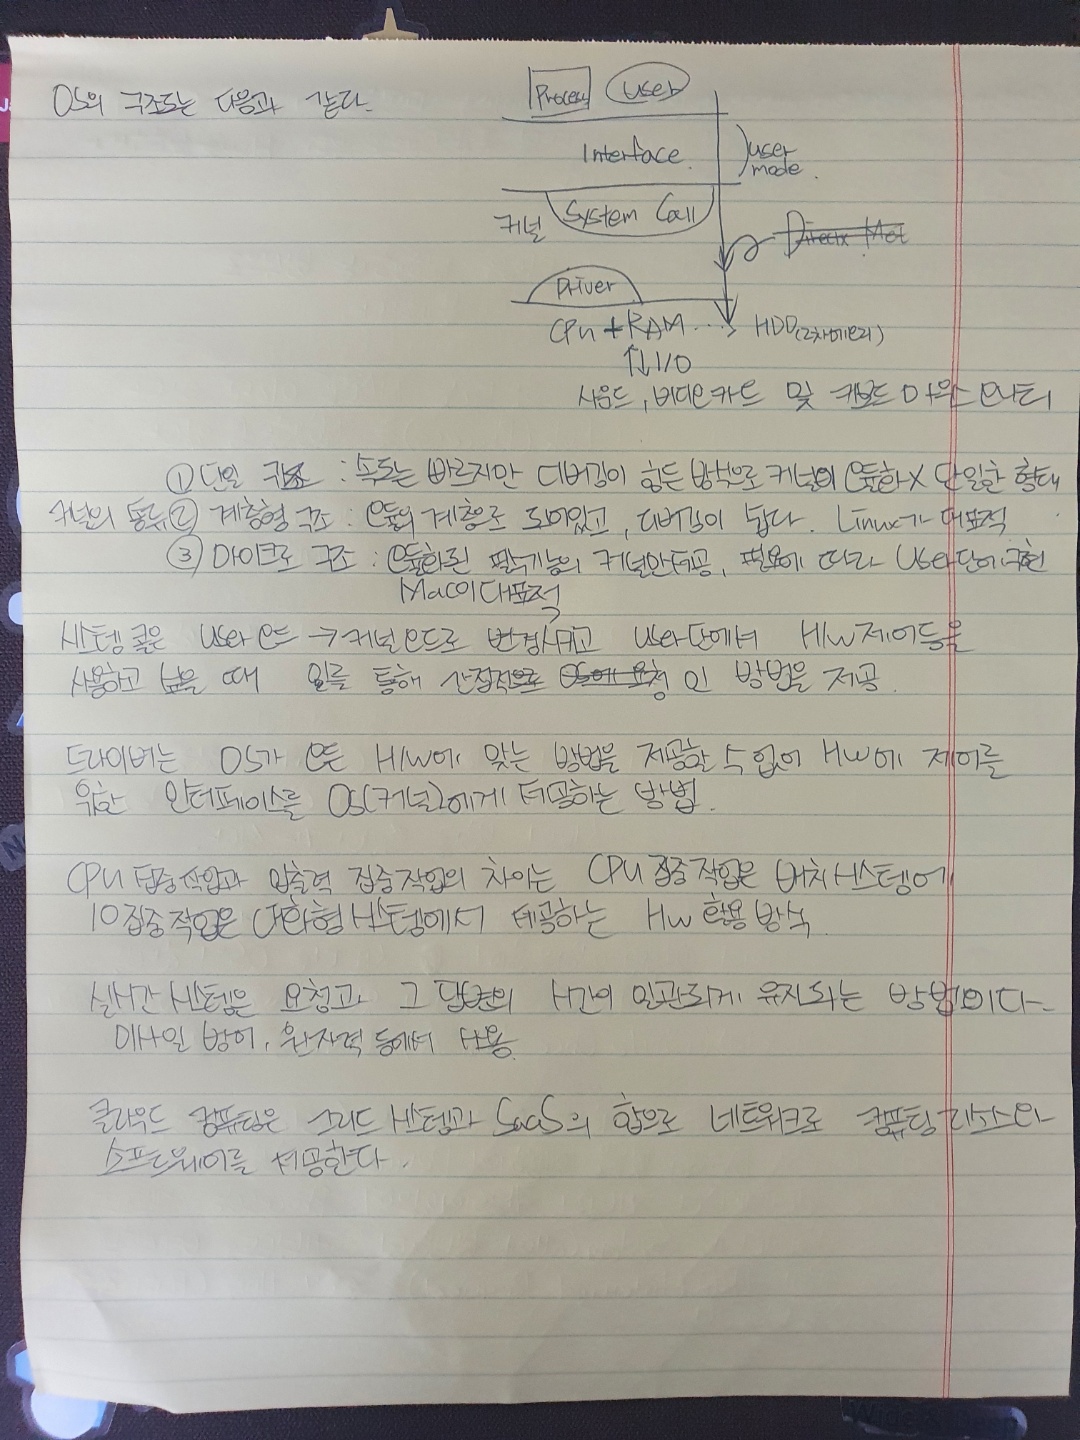 OS의 구조도는 다음과 같다.
Process User
Interface
user
mode.
커널 System Call
Driver
CPU + RAM ...> HDD (2차메모리)
↑↓ I/O
사운드, 비디오카드 및 키보드 마우스 모니터
① 단일 구조 : 속도는 빠르지만 디버깅이 힘든 방식으로 커널의 모듈화 X 단일한 형태
커널의 종류 ② 계층형 구조 : 모듈의 계층으로 되어있고, 디버깅이 쉽다. Linux가 대표적
③ 마이크로 구조 : 모듈화된 필수기능의 커널만 제공, 필요에 따라 User단에 구현
Mac이 대표적
시스템 콜은 User 모드 → 커널 모드로 변경시키고 user단에서 H/W 제어등을
사용하고 싶을 때 이를 통해 간접적으로 인 방법을 제공.
드라이버는 OS가 모든 H/W에 맞는 방법을 제공할 수 없어 HW에 제어를
위한 인터페이스를 OS(커널)에게 제공하는 방법.
CPU 집중작업과 입출력 집중작업의 차이는 CPU 집중작업은 배치시스템에
IO집중작업은 대화형 시스템에서 제공하는 HW 활용 방식.
실시간 시스템은 요청과 그 답변의 시간이 일관되게 유지되는 방법이다.
미사일 방어, 원자력 등에서 사용.
클라우드 컴퓨팅은 그리드 시스템과 SaaS의 합으로 네트워크로 컴퓨팅 리소스와
소프트웨어를 제공한다.